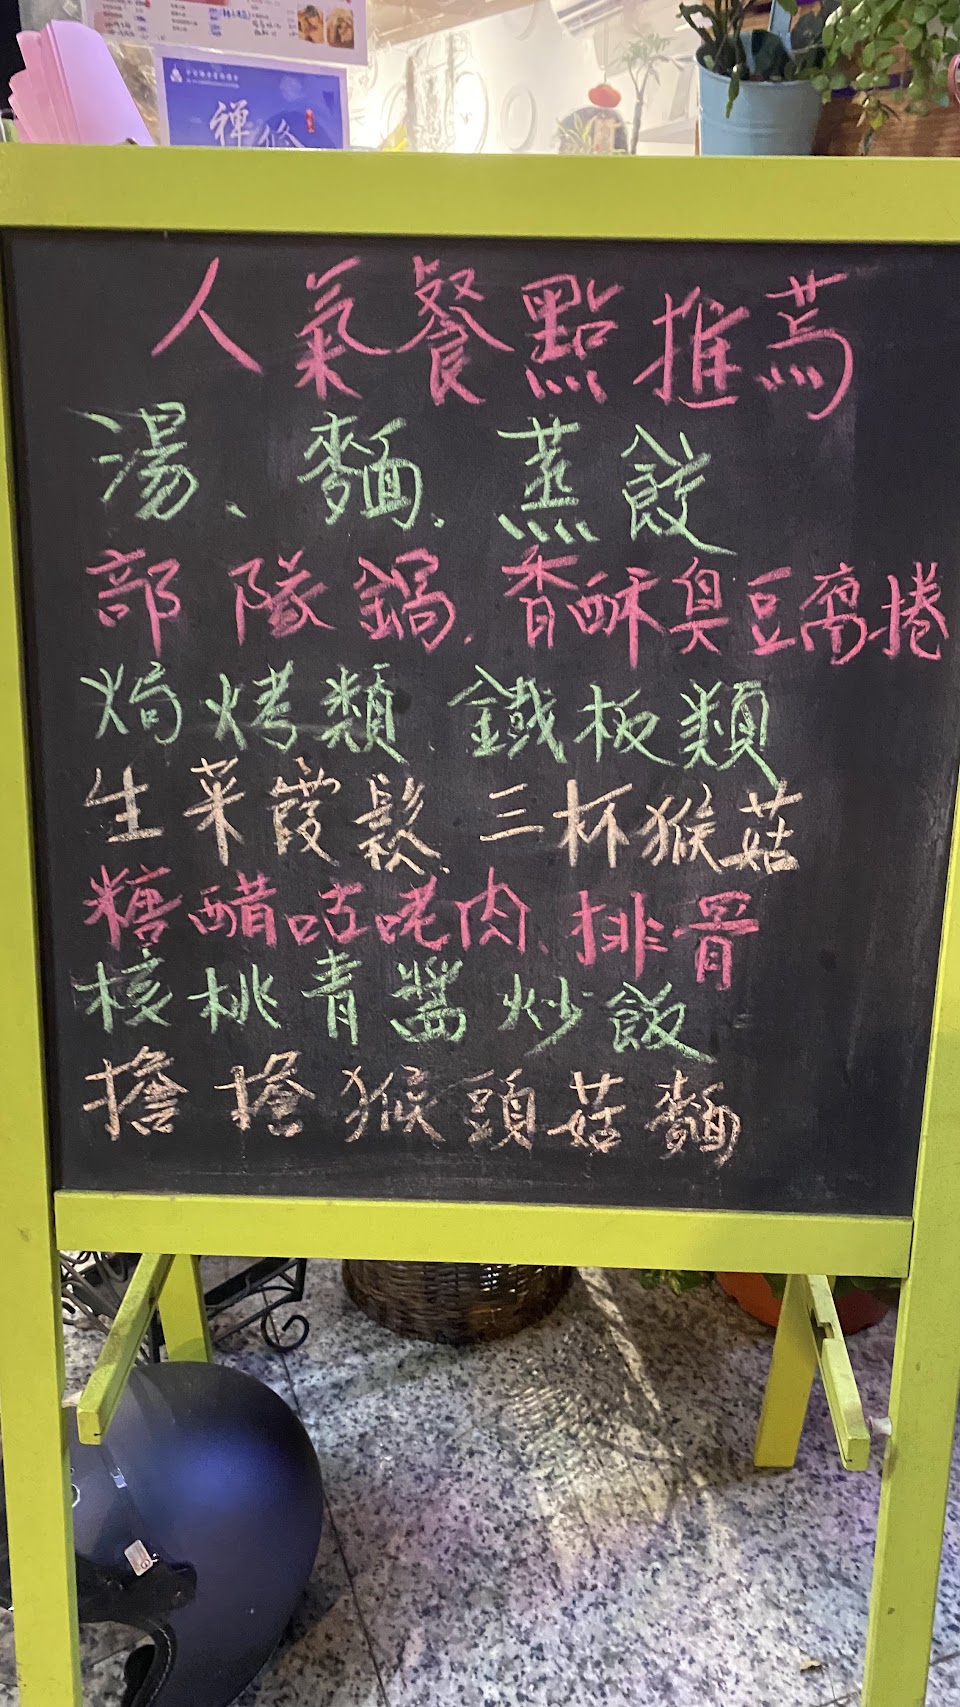 禪修
人氣餐點推薦
湯、麵、蒸餃
部隊鍋、香酥臭豆腐捲
焗烤類、鐵板類
生菜霞鬆、三杯猴菇
糖醋咕咾肉、排骨
核桃青醬炒飯
擔擔猴頭菇麵